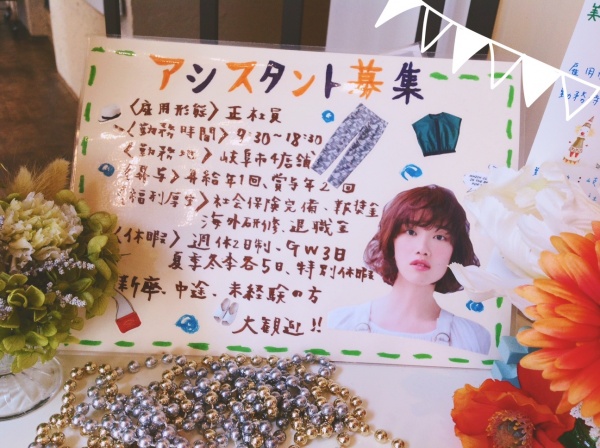 アシスタント募集
〈雇用形態〉正社員
〈勤務時間〉9:30~18:30
〈勤務地〉岐阜市4店舗
昇給年1回、賞与年2回
福利厚生〉社会保険完備、報奨金
海外研修、退職金
〈休暇〉週休2日制、GW3日
夏季冬季各5日、特別休暇
新卒、中途、未経験の方
大歓迎!!
雇用
勤務時